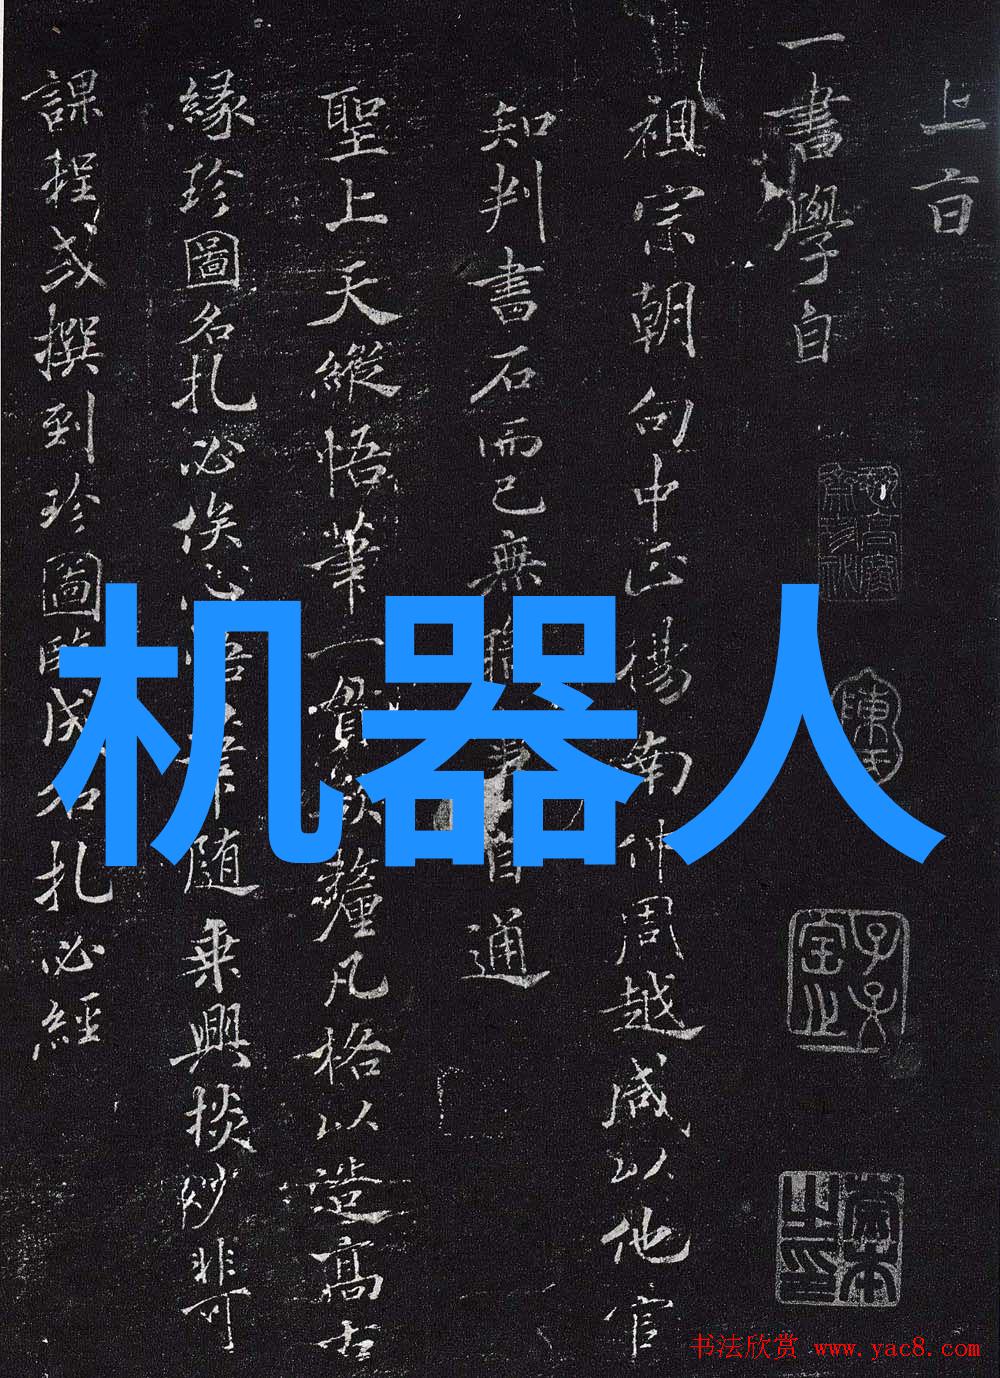 上言
一書學自
祖宗朝向中正楊南仲周越咸以他官
知判書石而已無職事自通
聖上天縱悟筆一貫毫釐凡格以造高古
緣珍圖名札必俟心悟筆隨乘興掞妙非可
課程或撰到珍圖臨成名札必經
机器人
书法欣赏 www.yac8.com